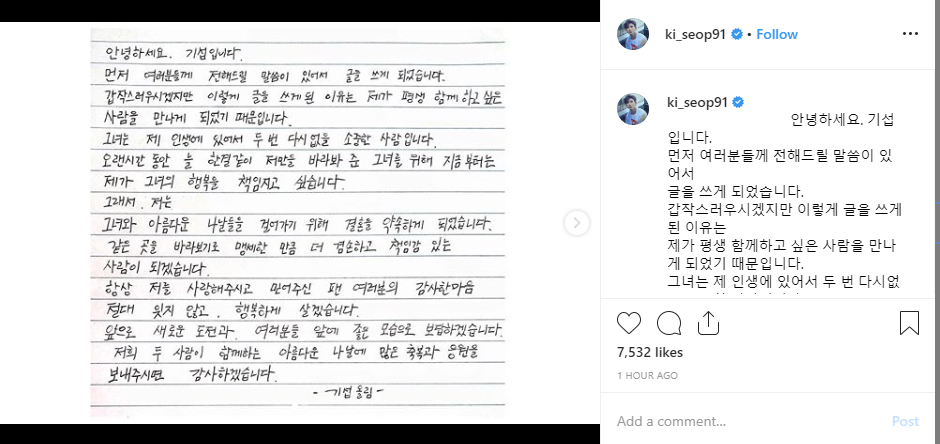 안녕하세요. 기섭입니다.
먼저 여러분들께 전해드릴 말씀이 있어서 글을 쓰게 되었습니다.
갑작스러우시겠지만 이렇게 글을 쓰게 된 이유는 제가 평생 함께 하고 싶은
사람을 만나게 되었기 때문입니다.
그녀는 제 인생에 있어서 두 번 다시 없을 소중한 사람입니다.
오랜시간 동안 늘 한결같이 저만을 바라봐 준 그녀를 위해 지금부터는
제가 그녀의 행복을 책임지고 싶습니다.
그래서 저는
그녀와 아름다운 나날들을 걸어가기 위해 결혼을 약속하게 되었습니다.
같은 곳을 바라보기로 맹세한 만큼 더 겸손하고 책임감 있는
사람이 되겠습니다.
항상 저를 사랑해주시고 믿어주신 팬 여러분의 감사한마음
절대 잊지 않고, 행복하게 살겠습니다.
앞으로 새로운 도전과 여러분들 앞에 좋은 모습으로 보답하겠습니다.
저희 두 사람이 함께하는 아름다운 나날에 많은 축복과 응원을
보내주시면 감사하겠습니다.
- 기섭 올림 -
ki_seop91 • Follow
ki_seop91
안녕하세요. 기섭
입니다.
먼저 여러분들께 전해드릴 말씀이 있
어서
글을 쓰게 되었습니다.
갑작스러우시겠지만 이렇게 글을 쓰게
된 이유는
제가 평생 함께하고 싶은 사람을 만나
게 되었기 때문입니다.
그녀는 제 인생에 있어서 두 번 다시없
7,532 likes
1 HOUR AGO
Add a comment... Post